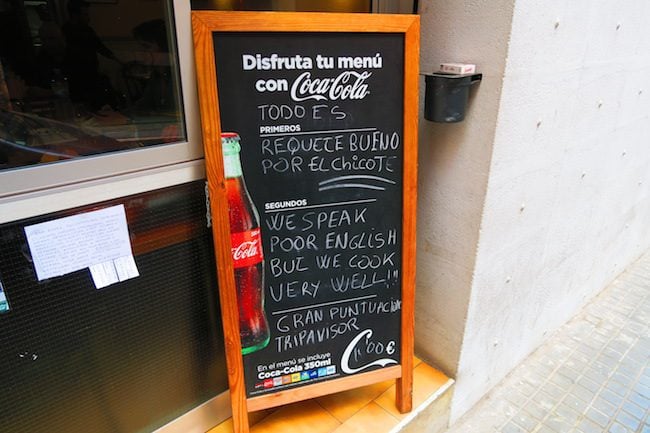 Disfruta tu menú
con Coca-Cola
TODO ES
PRIMEROS
REQUETE BUENO
POR EL CHICOTE
SEGUNDOS
WE SPEAK
POOR ENGLISH
BUT WE COOK
VERY WELL!!!
GRAN PUNTUACION
TRIPAVISOR
En el menú se incluye
Coca-Cola 350ml
Coca-Cola